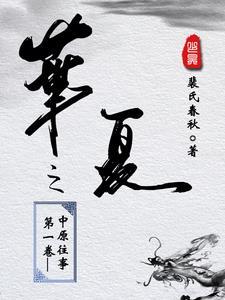 華夏
之
第一卷—
中原往事
裴氏春秋•著